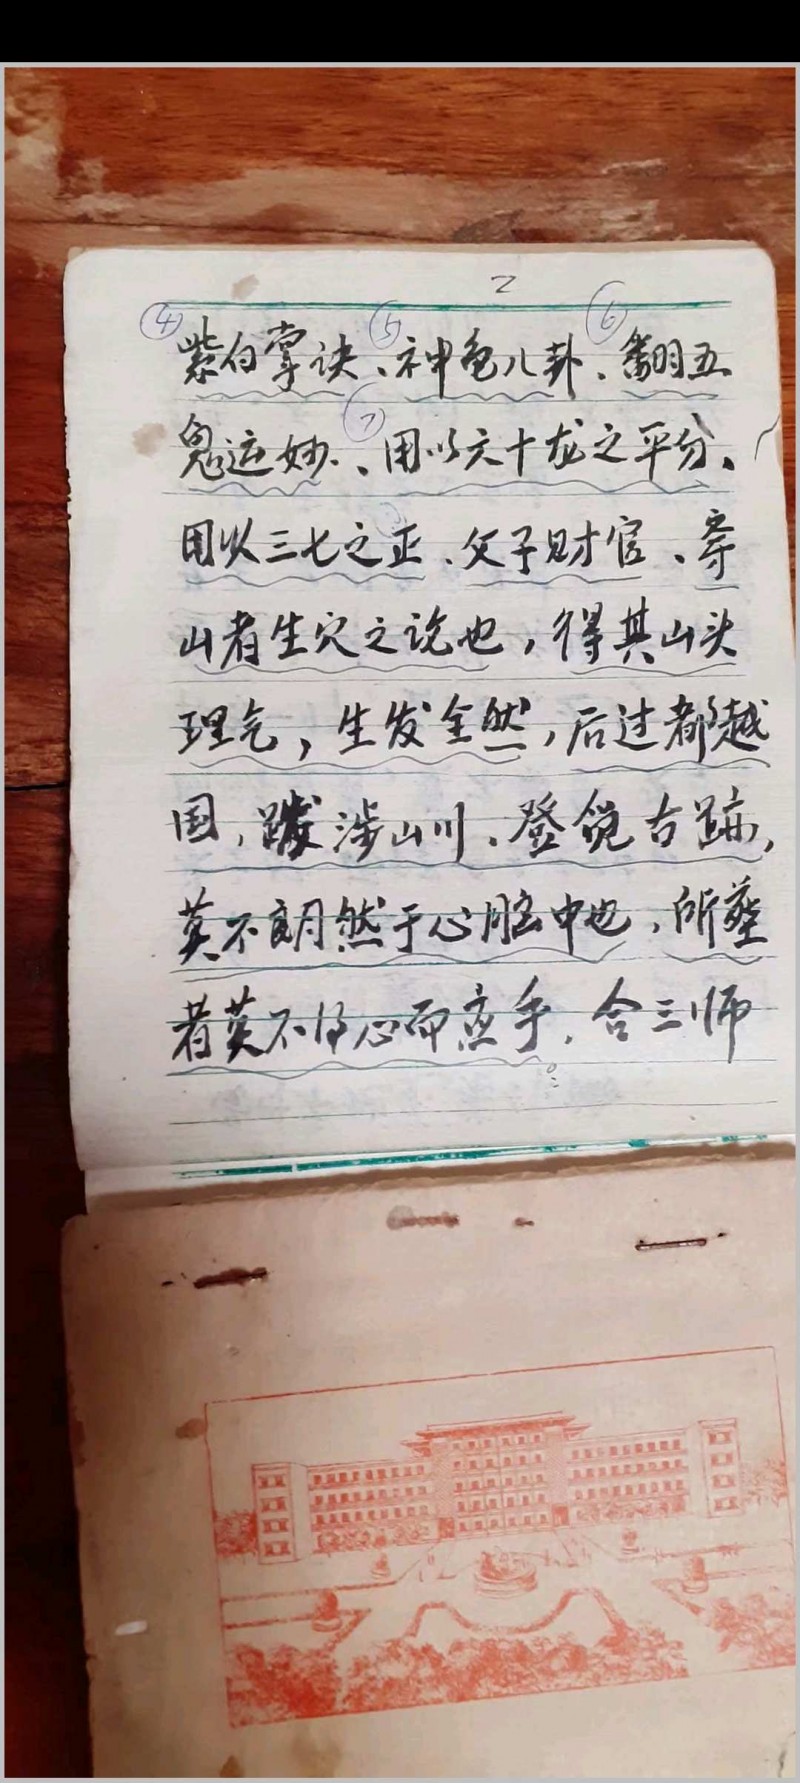 2
④ ⑤ ⑥
紫白掌诀、神龟八卦、翻五
⑦
鬼运妙、用以六十龙之平分、
用以三七之正、父子财官、寻
山者生穴之说也，得其山头
理气，生发全然，后过都越
国，跋涉山川、登览古迹，
莫不朗然于心脑中也，所葬
者莫不得心而应手。合三师